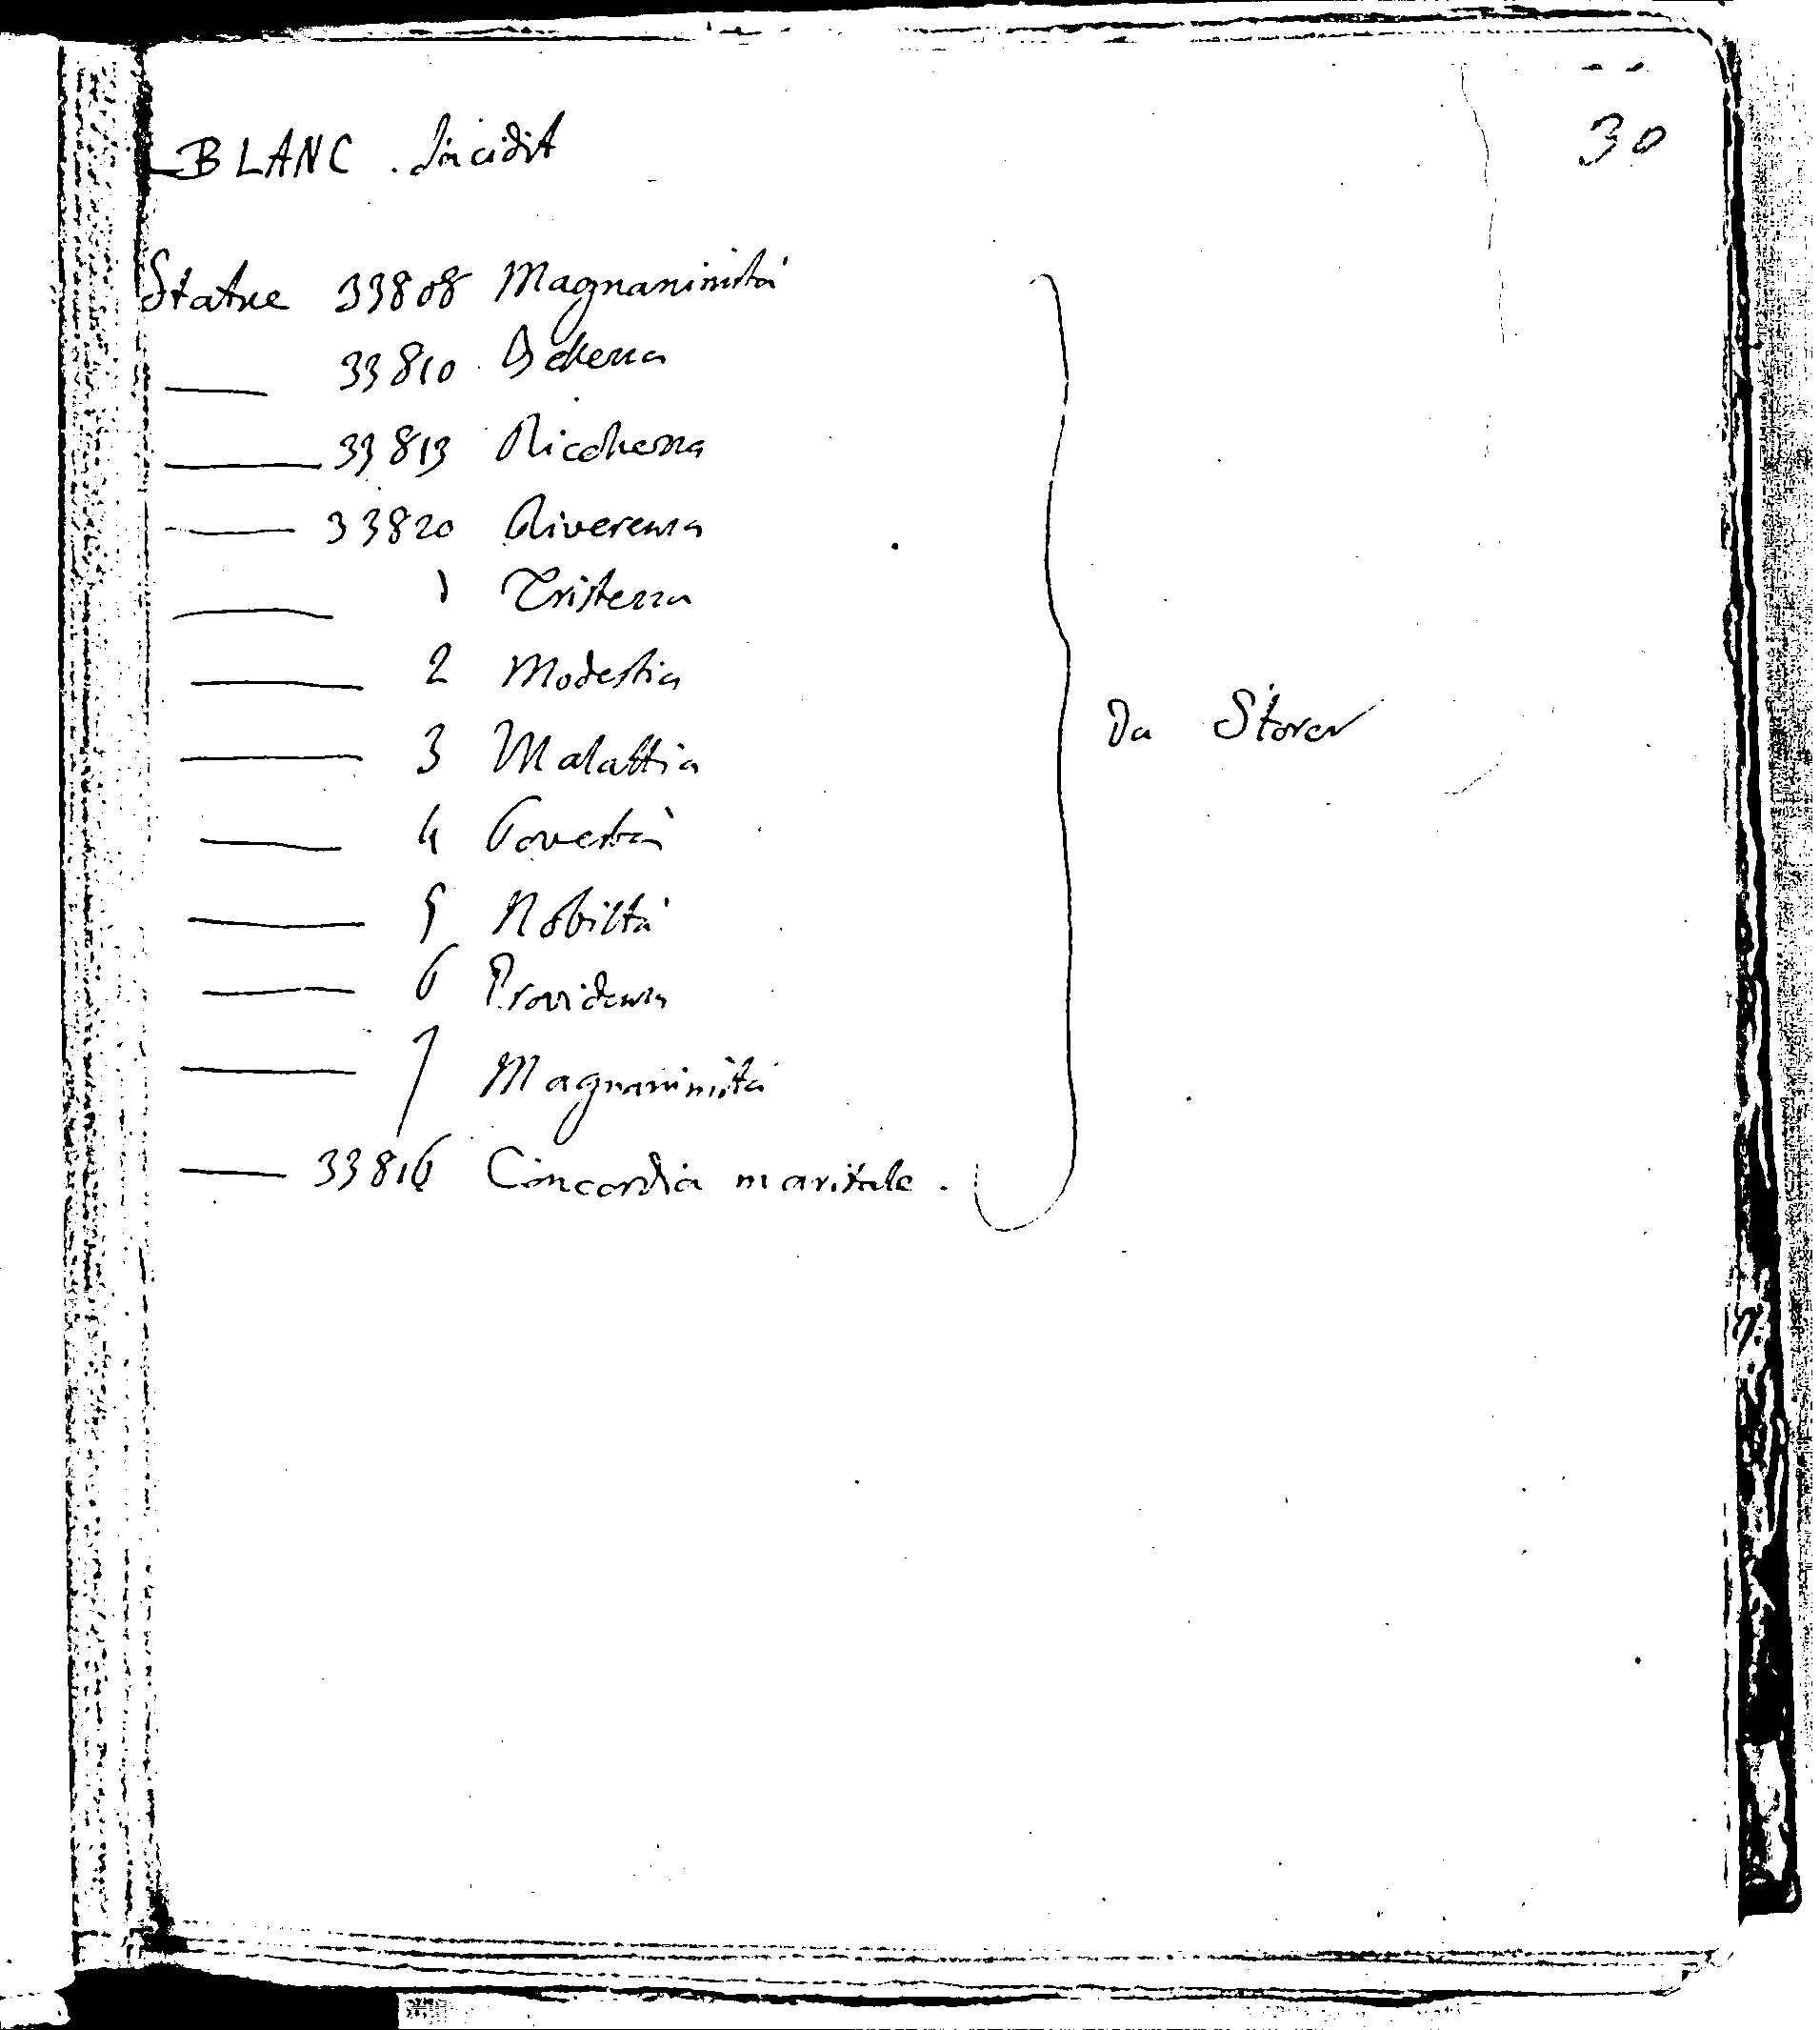 30
BLANC . Incidit
Statue 33808 Magnanimità
33810
33813 Ricchezza
33820 Riverenza
1 Tristezza
2 Modestia
3 Malattia
4 Povertà
5 Nobiltà
6 Providenza
7 Magnanimità
33816 Concordia maritale .
Da Storer